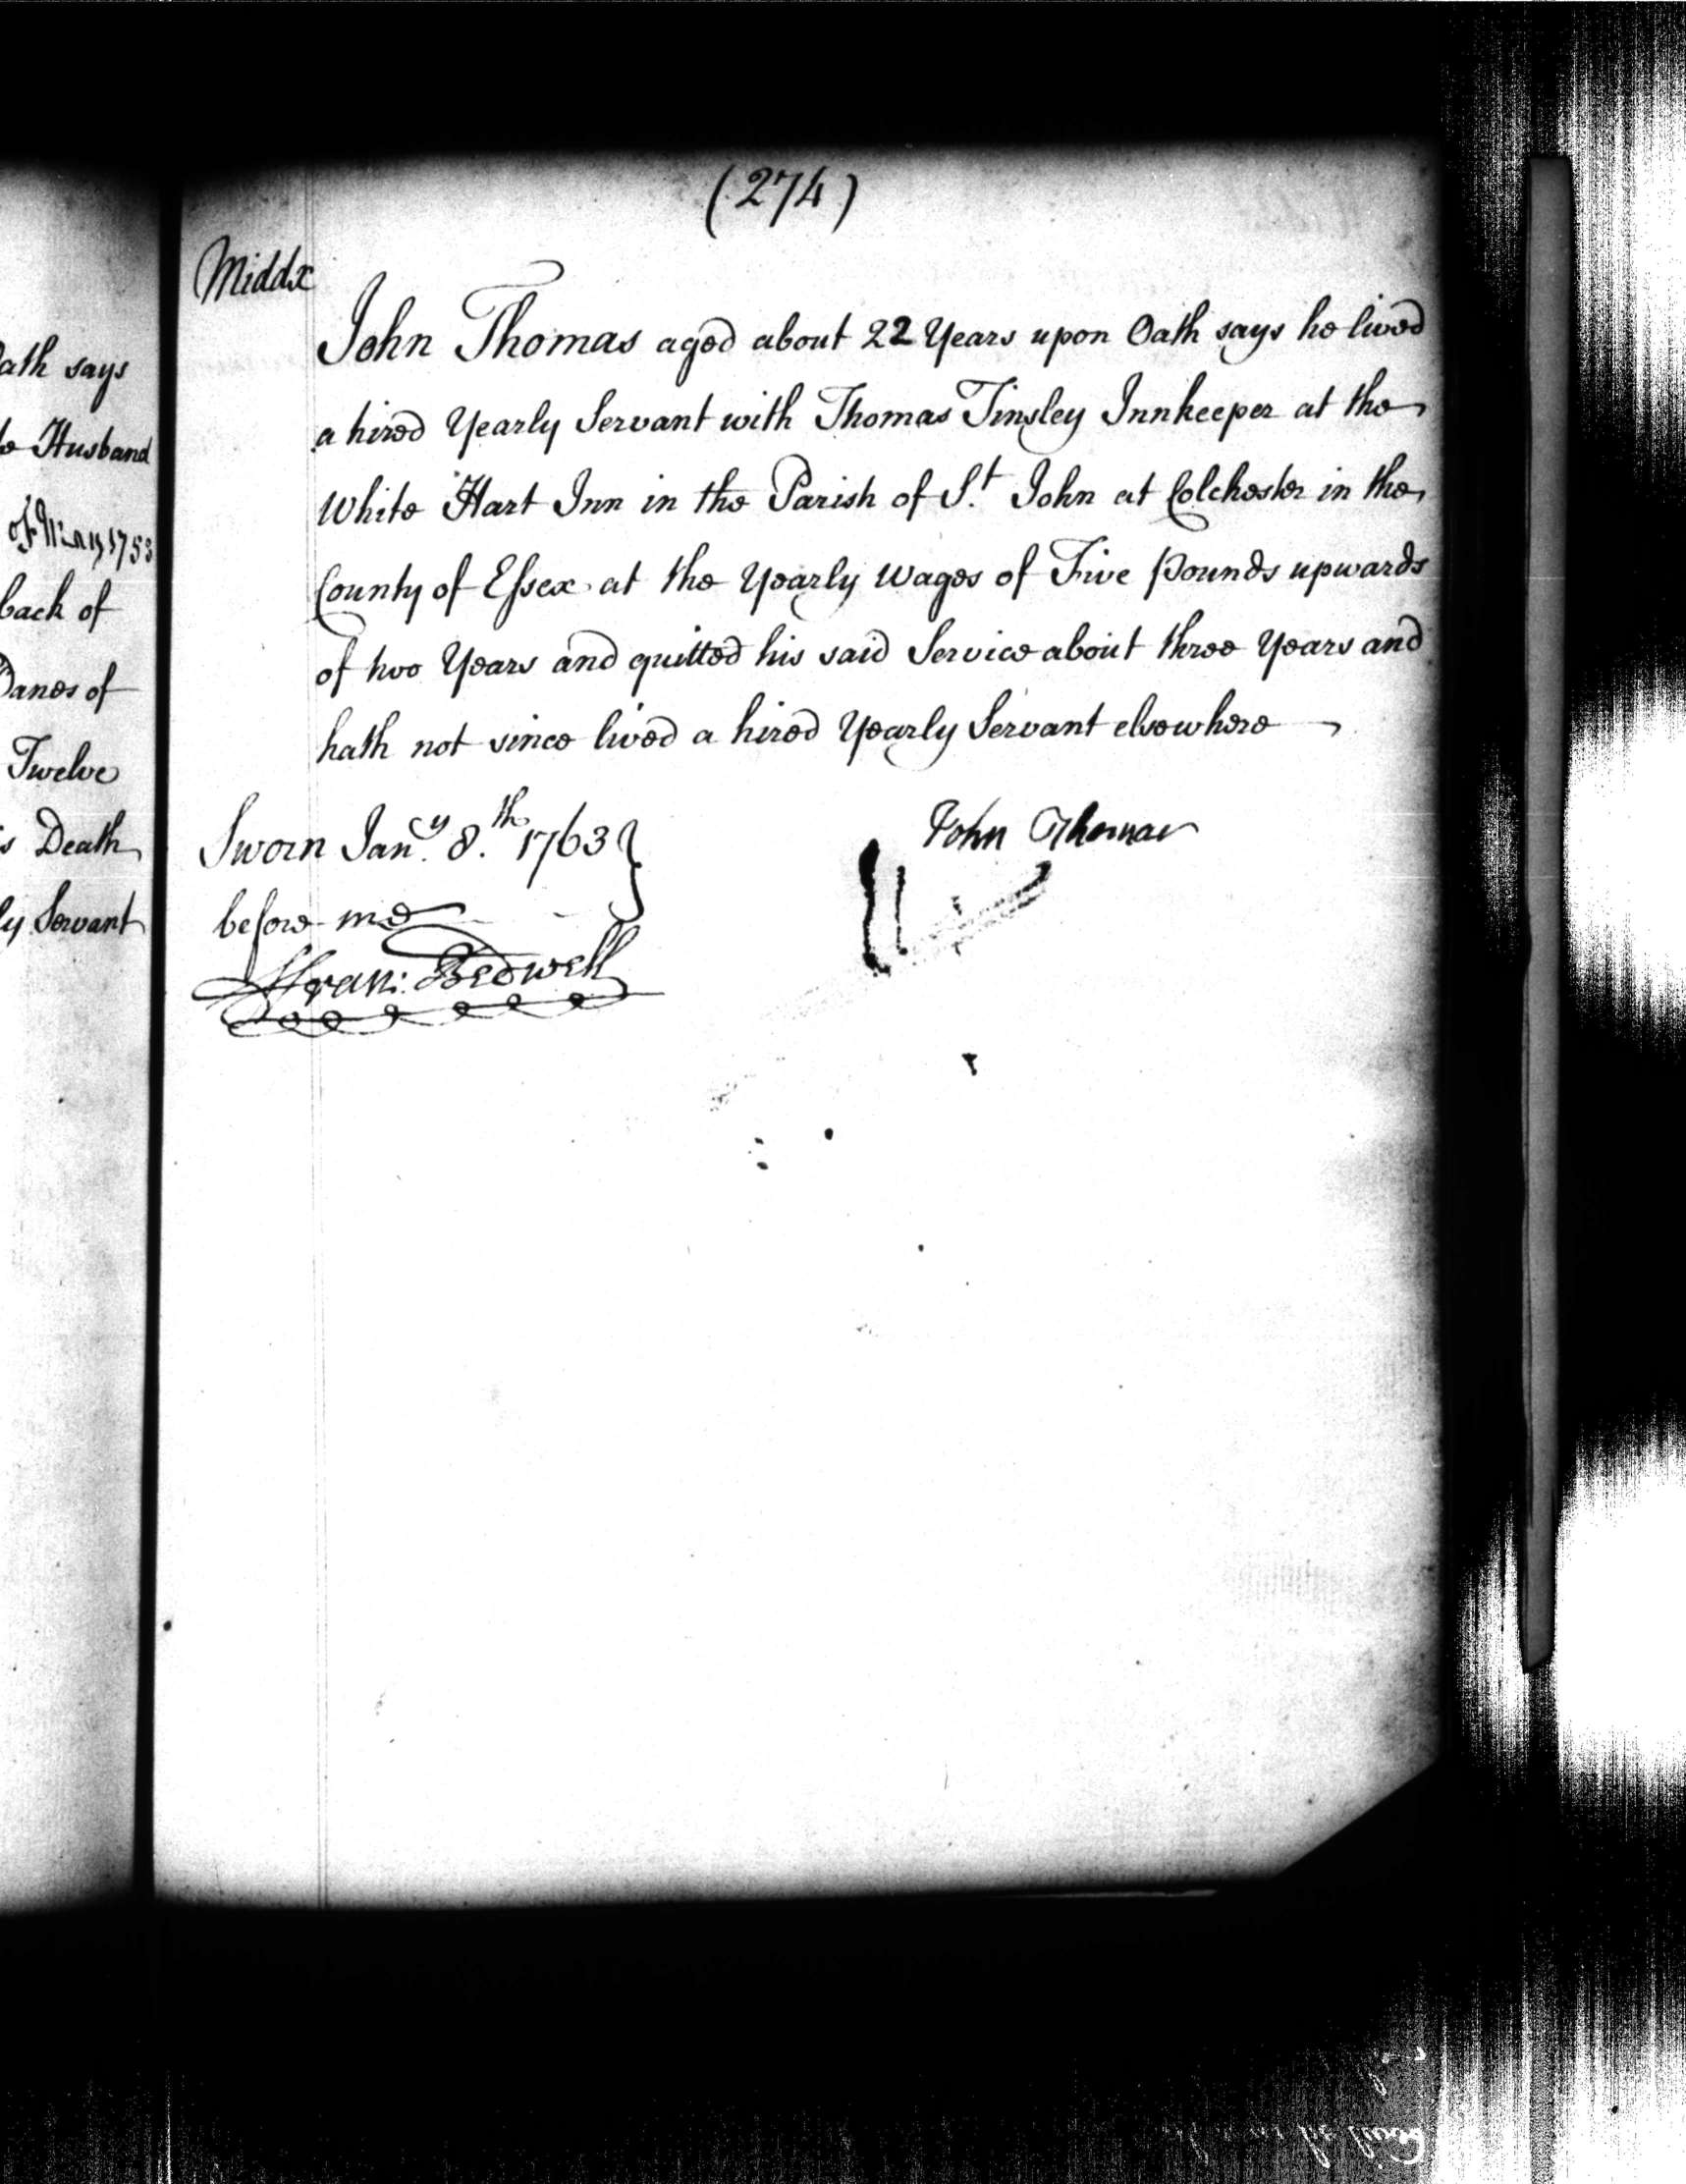 ath says
Husband
1753
back of
Danes of
Twelve
s Death
ly Servant
(274)
Middx
John Thomas aged about 22 Years upon Oath says he lived
a hired Yearly Servant with Thomas Tinsley Innkeeper at the
White Hart Inn in the Parish of St. John at Colchester in the
County of Essex at the Yearly Wages of Five Pounds upwards
of two Years and quitted his said Service about three Years and
hath not since lived a hired Yearly Servant elsewhere
Sworn Jany. 8.th 1763
before me
Fran: Bedwell
John Thomas